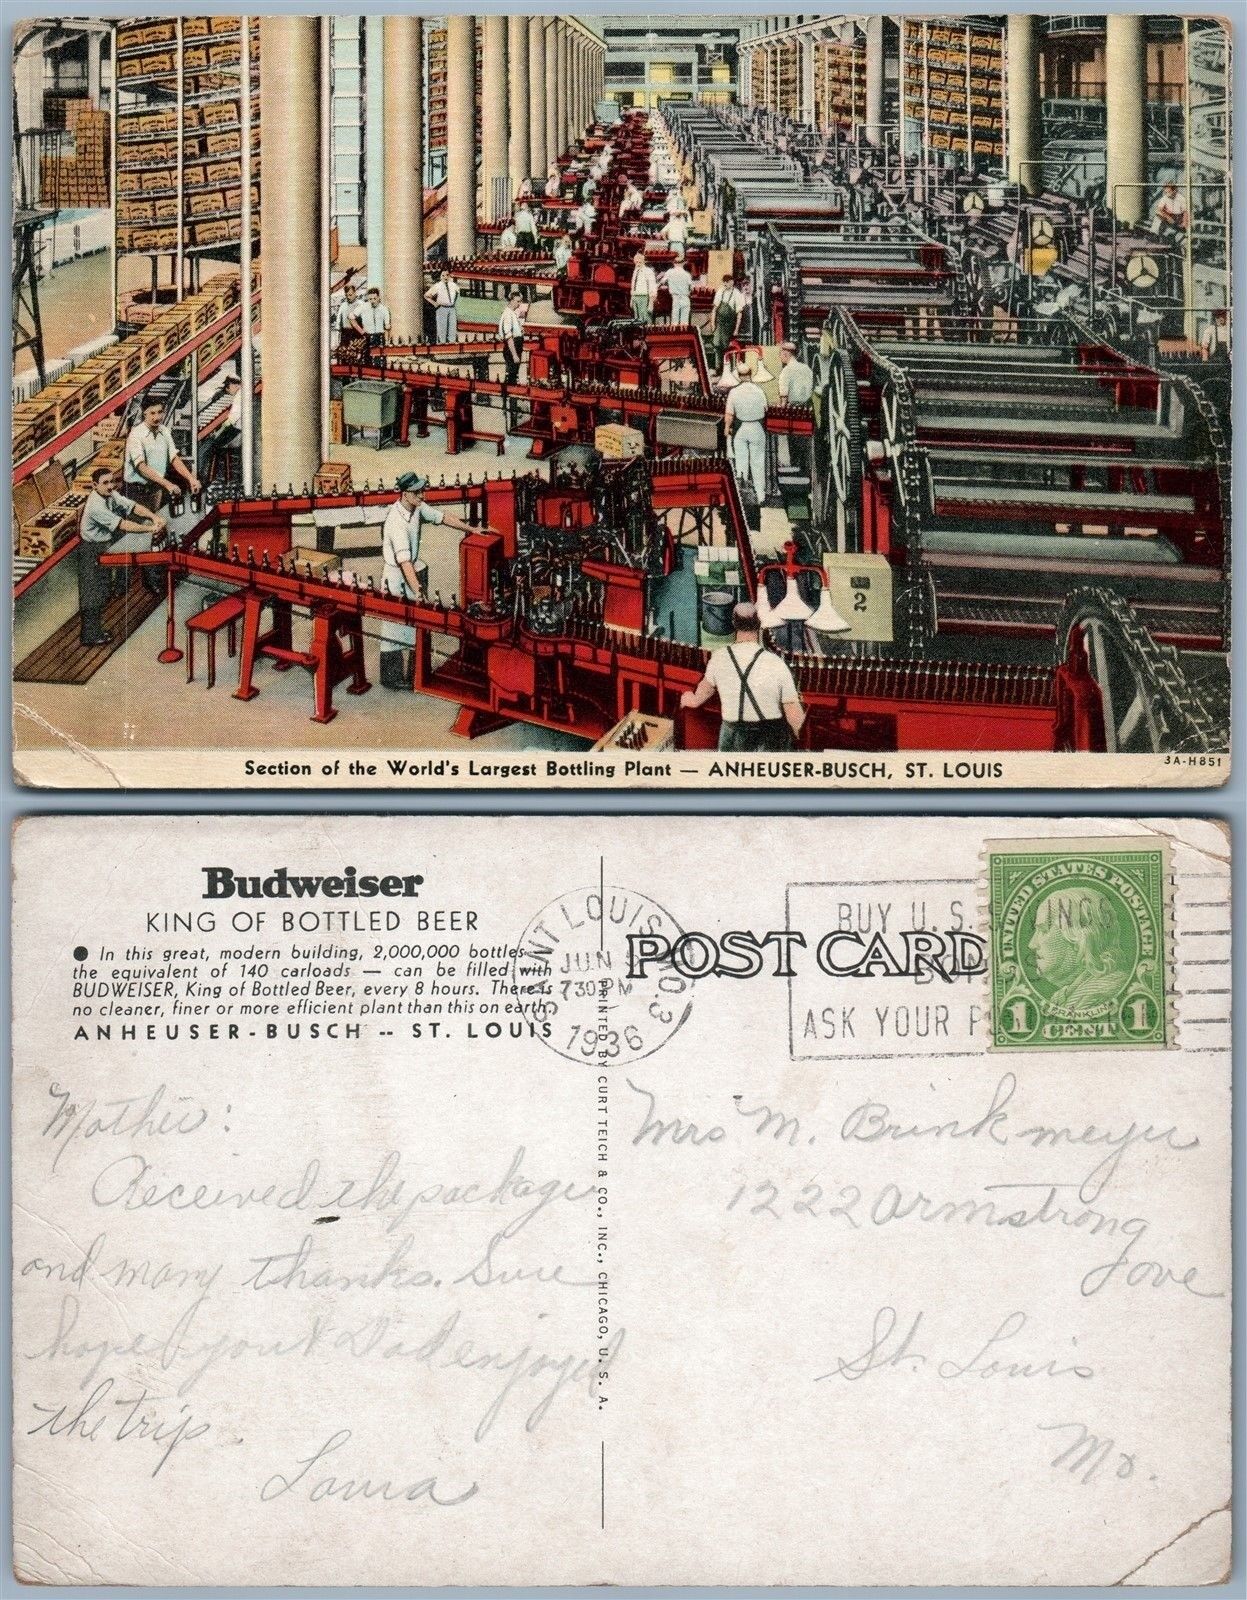 No
2
Section of the World's Largest Bottling Plant — ANHEUSER-BUSCH, ST. LOUIS
3A-H851
Budweiser
KING OF BOTTLED BEER
● In this great, modern building, 2,000,000 bottles
the equivalent of 140 carloads — can be filled with
BUDWEISER, King of Bottled Beer, every 8 hours. There is
no cleaner, finer or more efficient plant than this on earth.
ANHEUSER-BUSCH -- ST. LOUIS
SAINT LOUIS, MO. 3
JUN 5
730 PM
1936
POST CARD
BUY U.S. SAVINGS
BONDS
ASK YOUR P
UNITED STATES POSTAGE
FRANKLIN
1 CENT 1
PRINTED BY CURT TEICH & CO., INC., CHICAGO, U. S. A.
Mother:
Received the package
and many thanks. Sure
hope you & Dad enjoyed
the trip.
Mrs M. Brinkmeyer
1222 Armstrong
St. Louis
Mo.